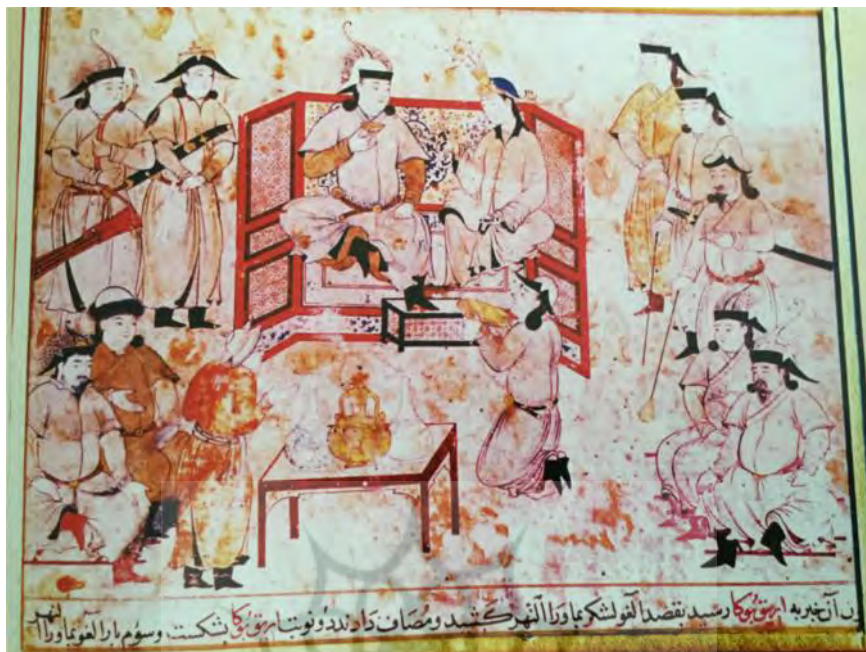 آن خبر به اریق بوکا رسید بقصد الغو لشکر بماورا النهر کشید و مصاف دادند دو نوبت اریق بوکا بشکست و سوم بار الغو بماورا النهر